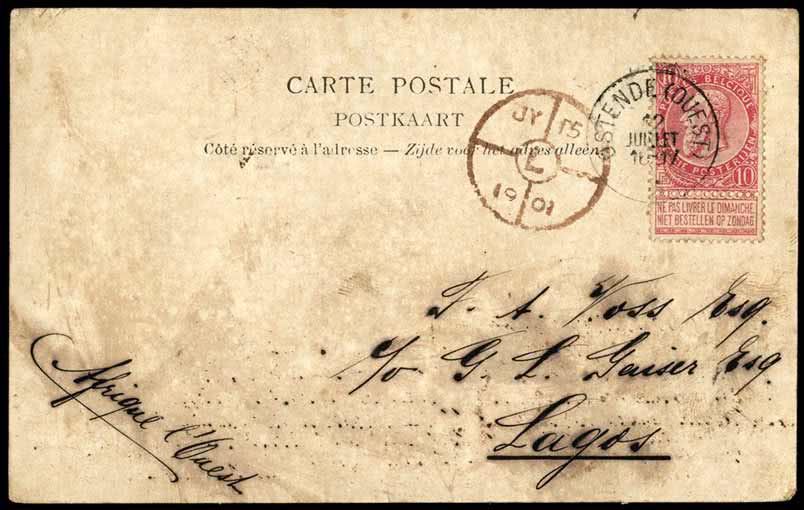 CARTE POSTALE
POSTKAART
Côté réservé à l'adresse — Zijde voor het adres alleen
JY 15
L
19 01
OSTENDE (OUEST)
12
JUILLET
BELGIQUE
10
NE PAS LIVRER LE DIMANCHE
NIET BESTELLEN OP ZONDAG
A. Voss Esq.
c/o G. L. Gaiser Esq
Lagos
Afrique l'Ouest